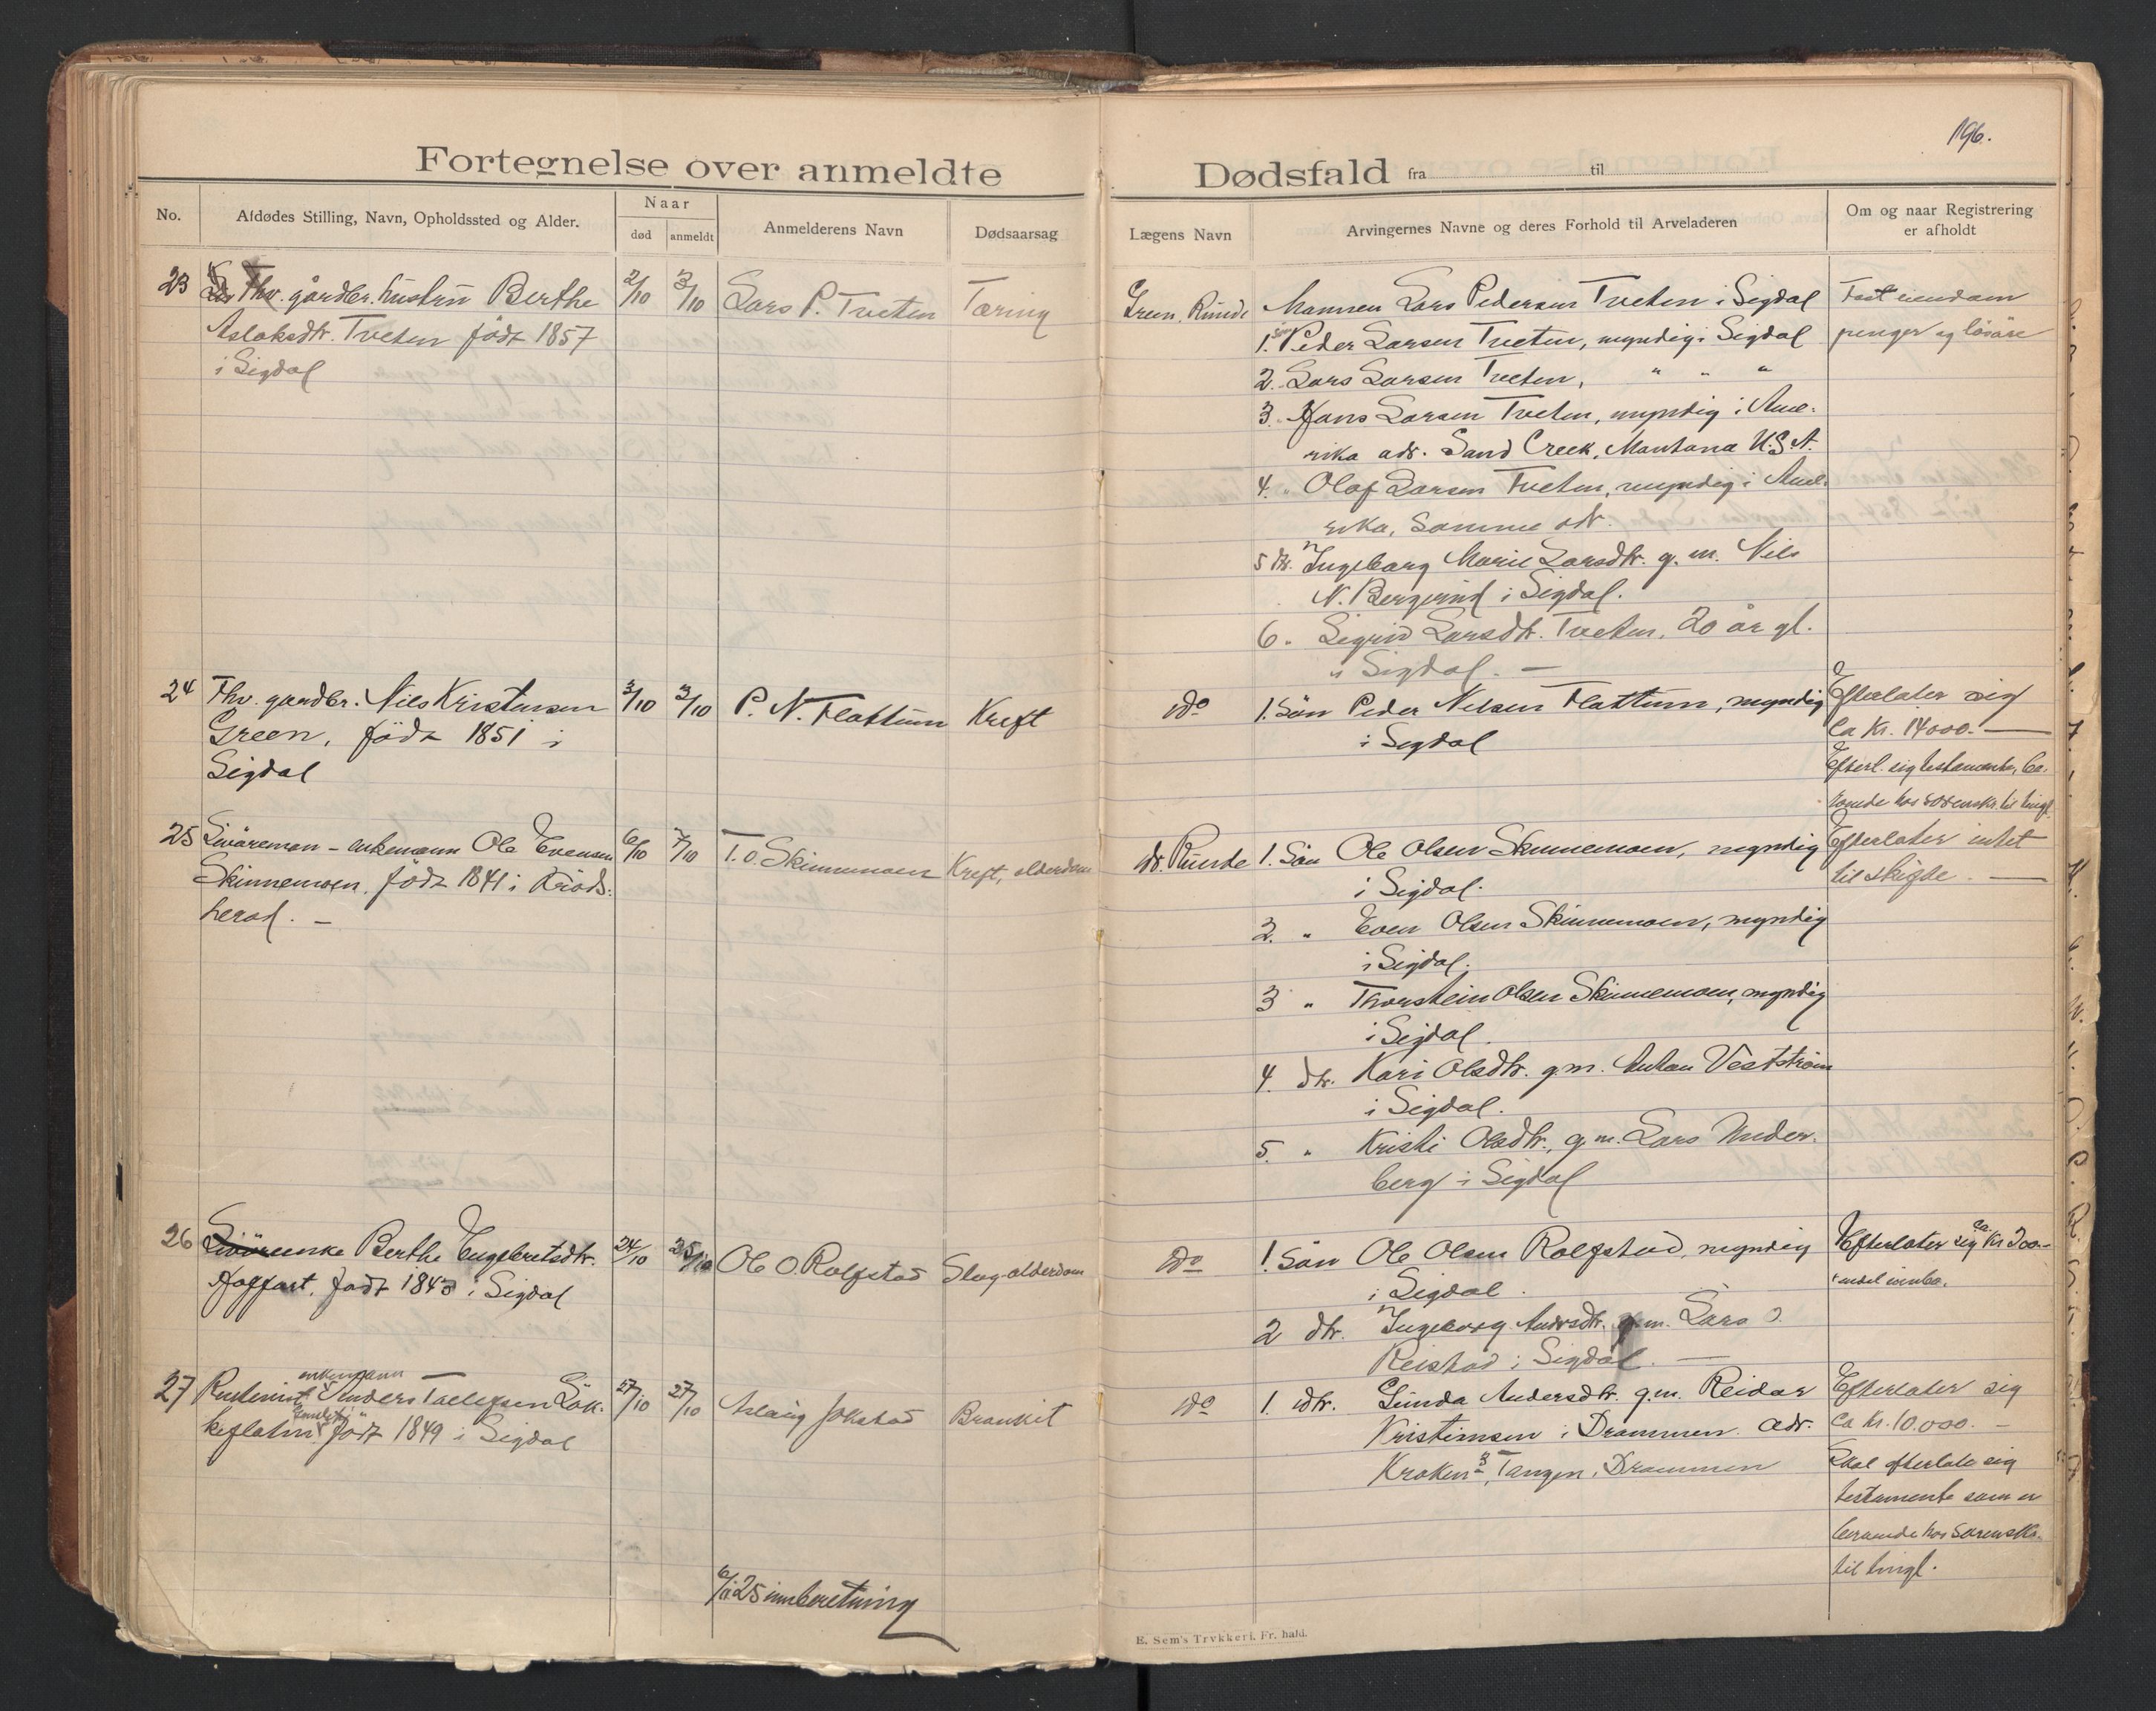 196.
Fortegnelse over anmeldte Dødsfald fra til
No.
Afdødes Stilling, Navn, Opholdssted og Alder.
Naar
død
anmeldt
Anmelderens Navn
Dødsaarsag
Lægens Navn
Arvingernes Navne og deres Forhold til Arveladeren
Om og naar Registrering
er afholdt
23 Fhv. gårdbr. hustru Berthe
Aslaksdtr. Tveten født 1857
i Sigdal
2/10
3/10
Lars P. Tveten
Tæring
Runde
Mannen Lars Pedersen Tveten i Sigdal
1. Søn Peder Larsen Tveten, myndig i Sigdal
2. Lars Larsen Tveten, " " "
3. Hans Larsen Tveten, myndig i Ame-
rika adr. Sand Creek, Montana U.S.A.
4. " Olaf Larsen Tveten, myndig i Ame-
rika, samme adr.
5 dtr. Ingeborg Marie Larsdtr. g. m. Nils
N. i Sigdal.
6 " Sigrid Larsdtr. Tveten, 20 år gl.
i Sigdal. —
Fast eiendom
penger og løsøre
24 Fhv. gårdbr. Nils Kristensen
Green, født 1851 i
Sigdal
3/10
3/10
P. N. Flattum
Kreft
do
1. Søn Peder Nilsen Flattum, myndig
i Sigdal
Efterlater sig
ca Kr. 14000. —
Efterl. sig testamente, be-
roende hos sorenskr. til tingl.
25 Livøremon - enkemann Ole Evensen
Skinnemoen, født 1841 i Krøds-
herad. —
6/10
7/10
T. O. Skinnemoen
Kreft, alderdom
dr. Runde
1. Søn Ole Olsen Skinnemoen, myndig
i Sigdal.
2. " Even Olsen Skinnemoen, myndig
i Sigdal.
3 " Thorstein Olsen Skinnemoen, myndig
i Sigdal.
4. dtr. Kari Olsdtr. g. m. Anton Vestström
i Sigdal.
5. " Kristi Olsdtr., g. m. Lars Under-
berg i Sigdal
Efterlater intet
til skifte. —
26 Livøreenke Berthe Engebretsdtr.
født 1843 i Sigdal
24/10
25/10
Ole O. Rolfstad
Slag-alderdom
do
1. Søn Ole Olsen Rolfstad, myndig
i Sigdal.
2 dtr. Ingeborg Andrsdtr. g. m. Lars O.
Reistad i Sigdal. —
Efterlater sig ca. Kr 200.—
+ endel innbo.
27 Rentenist, enkemann Anders Tollefsen Løk-
keflaten født 1849 i Sigdal
27/10
27/10
Aslaug Jokstad
Bronkit
do
1. dtr. Gunda Andersdtr. g. m. Reidar
Kristensen i Drammen. Adr.
Kroken 3, Tangen, Drammen
Efterlater sig
ca Kr. 10.000. —
Skal efterlate sig
testamente som er
beroende hos sorenskr.
til tingl.
6/11 25 innberetning
E. Sem's Trykkeri, Fr. hald.